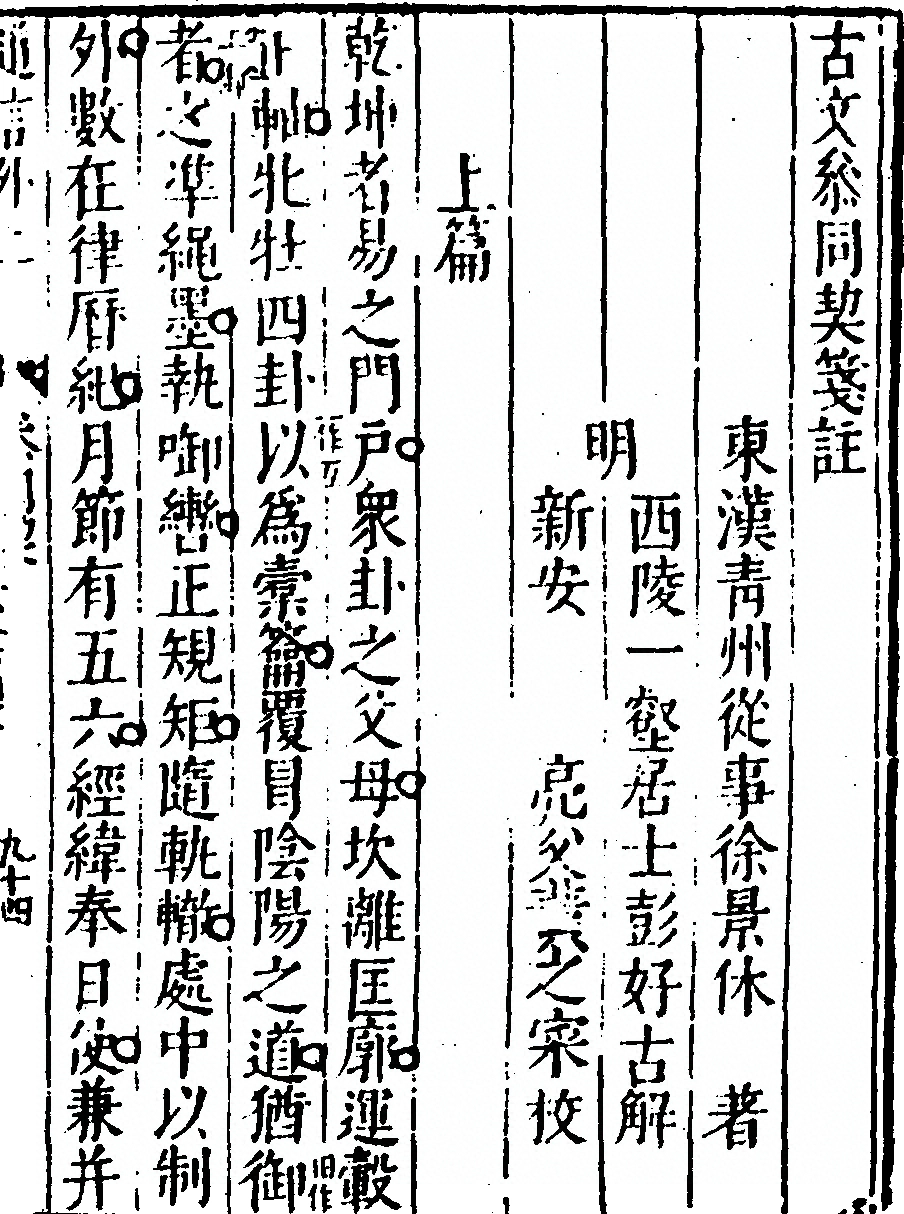 古文叅同契箋註
東漢青州從事徐景休 著
明
西陵一壑居士彭好古解
新安 之宷校
上篇
乾坤者易之門戶衆卦之父母坎離匡廓運轂
正軸牝牡四卦以爲橐籥覆冒陰陽之道猶御
者之準繩墨執啣轡正規矩隨軌轍處中以制
外數在律曆紀月節有五六經緯奉日使兼并
道言外 二
九十四